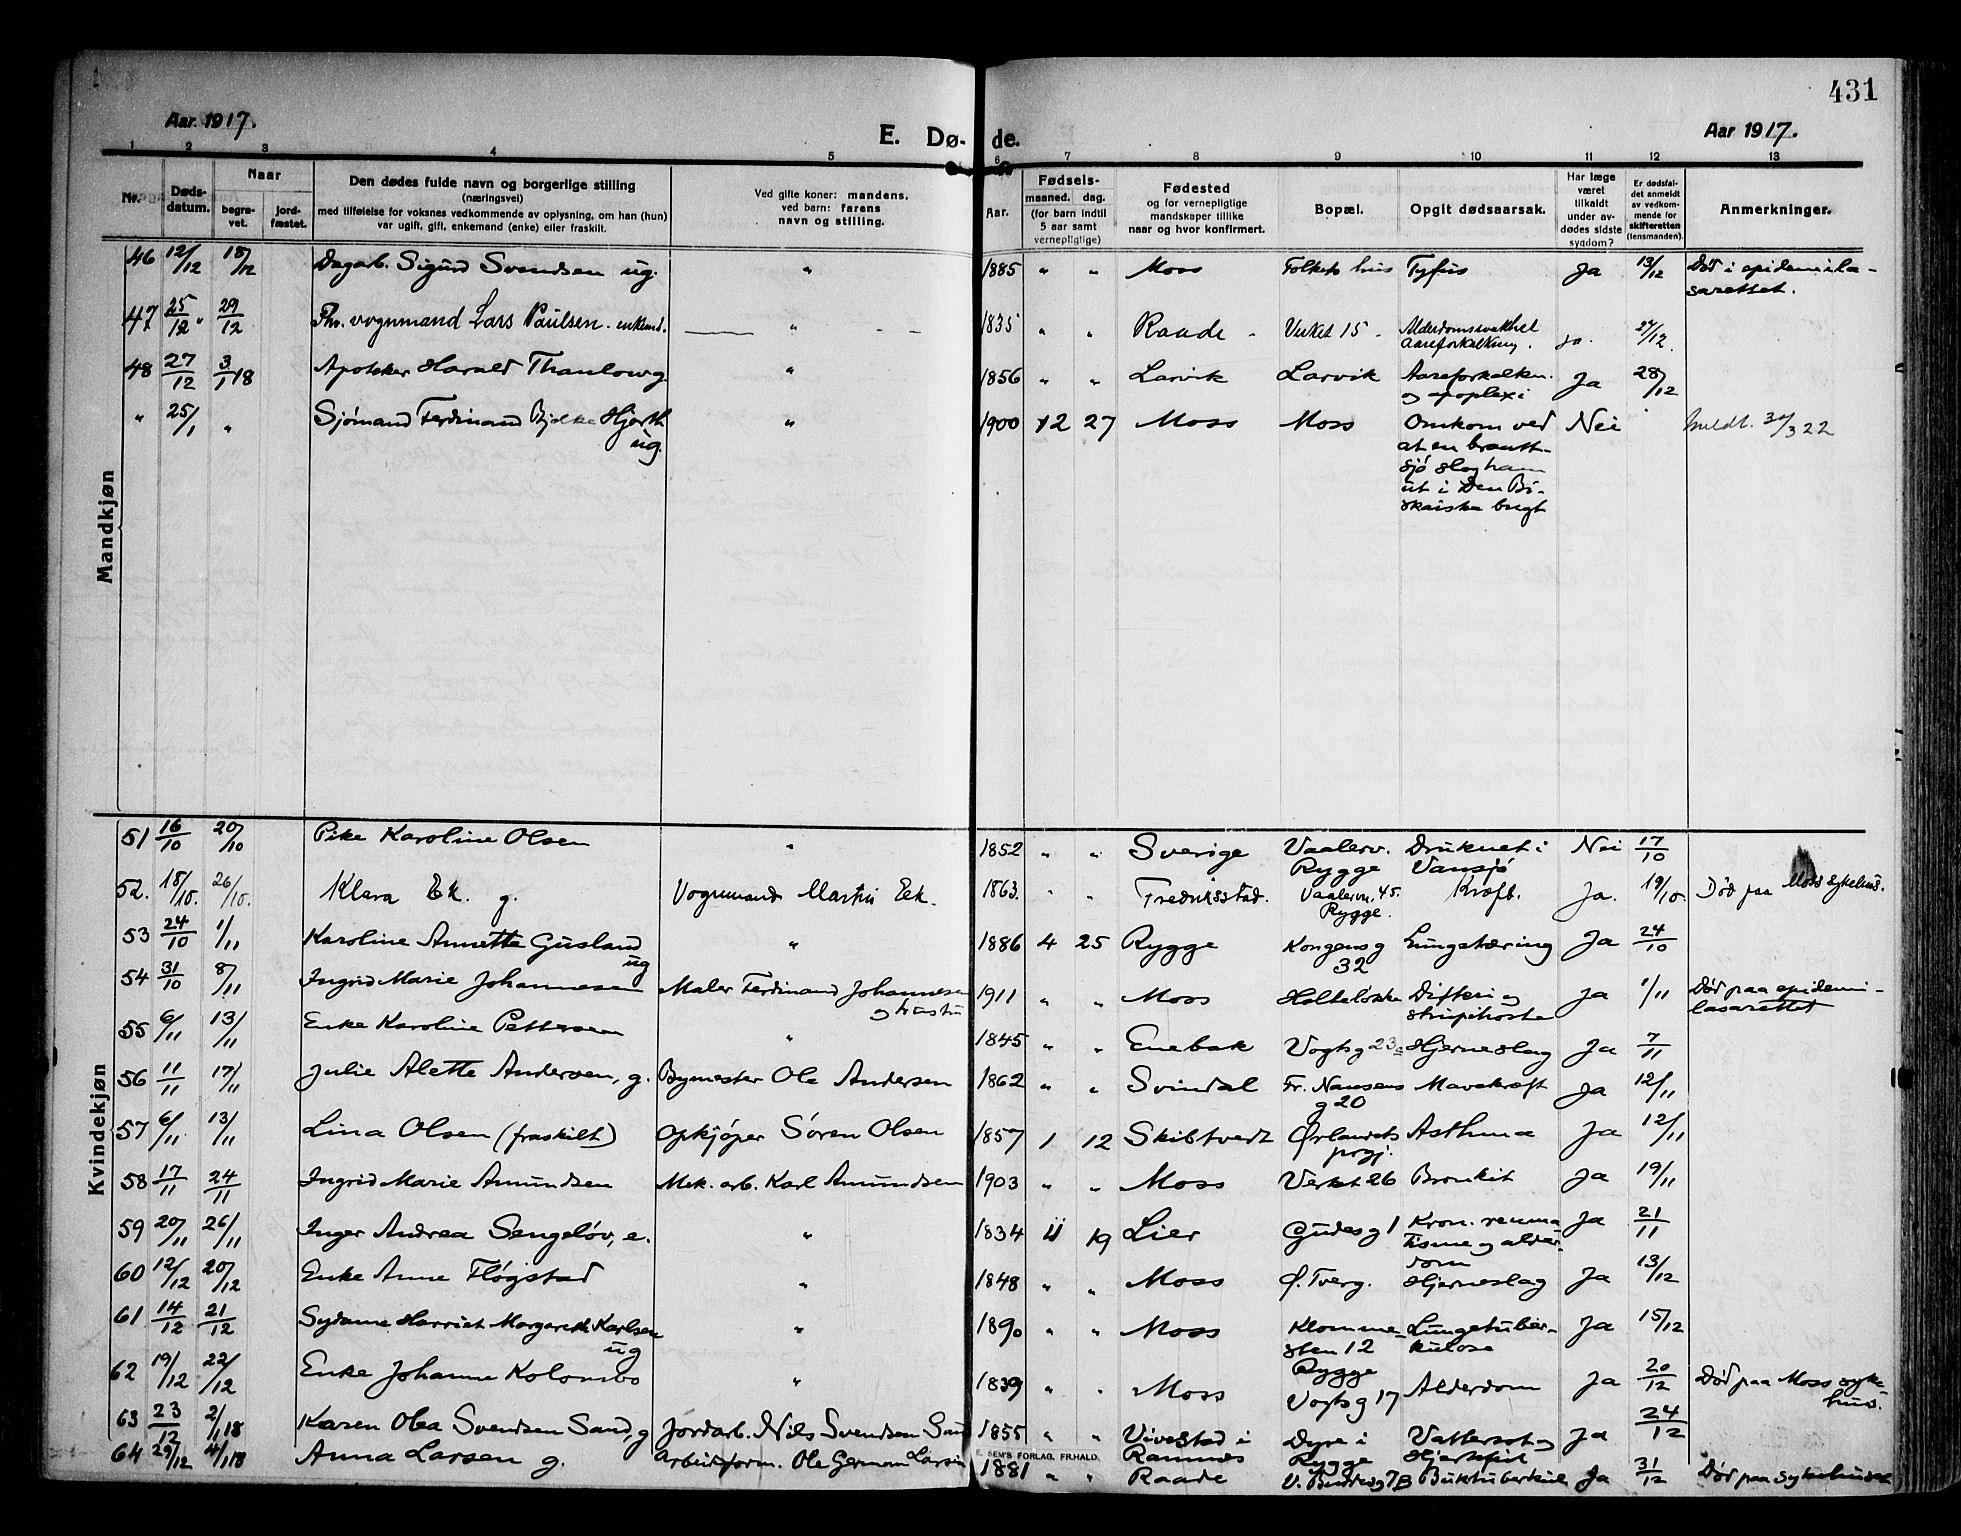 431
Aar 1917.
E. Dø- de.
Aar 1917.
1 2 3 4 5 6 7 8 9 10 11 12 13
Nr.
Døds-datum.
Naar
begra-vet.
jord-fæstet.
Den dødes fulde navn og borgerlige stilling
(næringsvei)
med tilføielse for voksnes vedkommende av oplysning, om han (hun)
var ugift, gift, enkemand (enke) eller fraskilt.
Ved gifte koner: mandens,
ved barn: farens
navn og stilling.
Aar.
Fødsels-
maaned. dag.
(for barn indtil
5 aar samt
vernepligtige)
Fødested
og for vernepligtige
mandskaper tillike
naar og hvor konfirmert.
Bopæl.
Opgit dødsaarsak.
Har læge
været
tilkaldt
under av-
dødes sidste
sygdom?
Er dødsfal-
det anmeldt
av vedkom-
mende for
skifteretten
(lensmanden).
Anmerkninger.
Mandkjøn
46 12/12 18/12 Dagarb. Sigurd Svendsen ug. " 1885 " " Moss Folkets hus Tyfus Ja 13/12 Død i epidemila-
sarettet.
47 25/12. 29/12 Fhv. vognmand Lars Paulsen. enkemd. " 1835 " " Raade - Verket 15 - Alderdomssvakhet
Aareforkalkning. ja. 27/12.
48 27/12 3/1 18 Apotheker Harald Thaulow g. " 1856 " " Larvik Larvik Aareforkalkn.
og apoplexi Ja 28/12
" 25/1 " Sjømand Ferdinand Bjelke Hjorth
ug. " 1900 12 27 Moss Moss Omkom ved
at en braatt-
sjø slog ham
ut i Den Bi-
skaiske bugt Nei meldt. 30/3 22
Kvindekjøn
51 16/10 20/10 Pike Karoline Olsen " 1852 " " Sverige Vaalerv.
Rygge Druknet i
Vansjø Nei 17/10
52. 18/10. 26/10. Klara Eek. g. Vognmand Martin Eek. 1863. " " Fredriksstad. Vaalervn. 45.
Rygge. Kræft. Ja. 19/10. Død paa Moss sykehus.
53 24/10 1/11 Karoline Annette Gusland
ug " 1886 4 25 Rygge Kongensg
32 Lungetæring Ja 24/10
54 31/10 8/11 Ingrid Marie Johannesen Maler Ferdinand Johannesen
og hustru 1911 " " Moss Holteløkke Difteri og
strupehoste Ja 1/11 Død paa epidemi-
lasarettet
55 6/11 13/11 Enke Karoline Pettersen " 1845 " " Enebak Vogtsg 23a Hjerneslag Ja 7/11
56 11/11 17/11 Julie Alette Andersen, g. Bymester Ole Andersen 1862 " " Svindal Fr. Nansens
g 20 Mavekræft Ja 12/11
57 6/11 13/11 Lina Olsen (fraskilt) Opkjøper Søren Olsen 1857 1 12 Skibtvedt Ørlandets
prgj. Asthma Ja 12/11
58 17/11 24/11 Ingrid Marie Amundsen Mek. arb. Karl Amundsen 1903 " " Moss Verket 26 Bronkit Ja 19/11
59 20/11 26/11 Inger Andrea Sengeløv, e. " 1834 11 19 Lier Gudesg 1 Kron. reuma-
tisme og alder-
dom Ja 21/11
60 12/12 20/12 Enke Anne Fløgstad " 1848 " " Moss Ø. Tverg. Hjerneslag Ja 13/12
61 14/12 21/12 Sydame Harriet Margarethe Karlsen
ug " 1890 " " Moss Klomme-
sten 12
Rygge Lungetuber-
kulose Ja 15/12
62 19/12 22/12 Enke Johanne Kolomoo " 1839 " " Moss Vogtsg 17 Alderdom Ja 20/12 Død paa Moss syke-
hus.
63 23/12 2/1 18 Karen Olea Svendsen Sand, g Jordarb. Nils Svendsen Sand 1855 " " Vivestad i
Ramnes Dyre i
Rygge Vattersot og
Hjertefeil Ja 24/12
64 29/12 4/1 18 Anna Larsen g. Arbeidsform. Ole German Larsen 1881 " " Raade V. Bredesg 7B Buktuberkul. Ja 31/12 Død paa sykehuset
E. SEM'S FORLAG, FR.HALD.